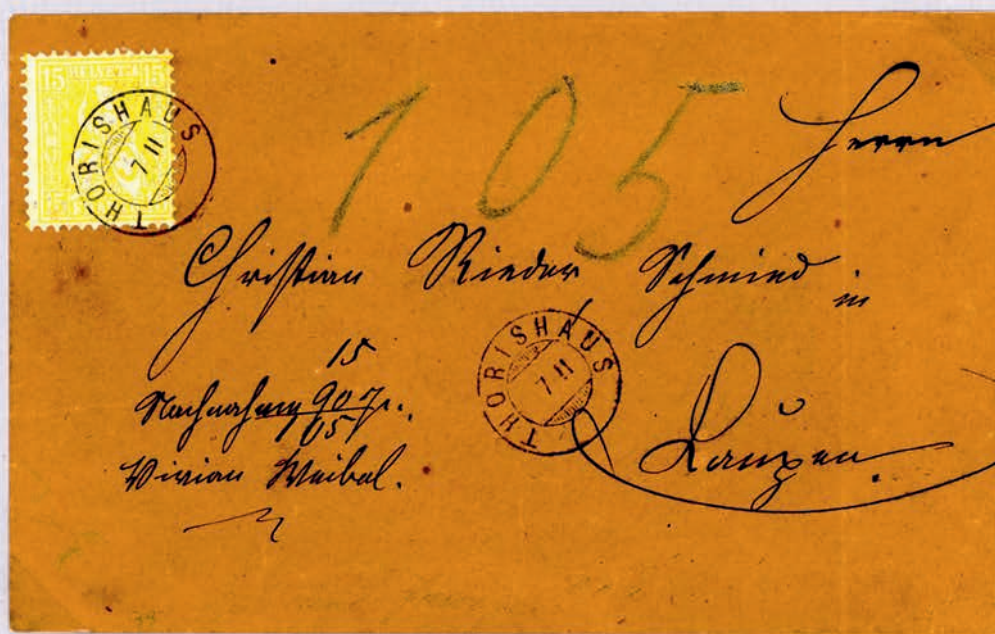 15 HELVETIA 15
THORISHAUS
7 II
105
Herrn
Christian Rieder Schmied
in
THORISHAUS
7 II
Laupen.
15
Nachnahme 90
105
Vivian Weibel.